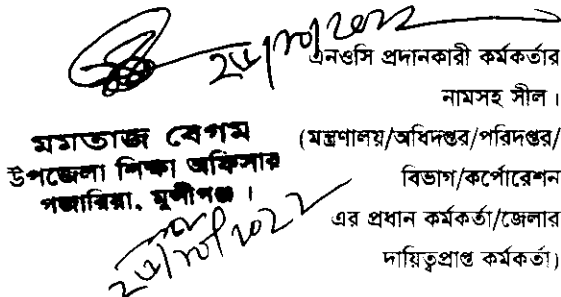 এনওসি প্রদানকারী কর্মকর্তার
নামসহ সীল।
(মন্ত্রণালয়/অধিদপ্তর/পরিদপ্তর/
বিভাগ/কর্পোরেশন
এর প্রধান কর্মকর্তা/জেলার
দায়িত্বপ্রাপ্ত কর্মকর্তা)
মমতাজ বেগম
উপজেলা শিক্ষা অফিসার
গজারিয়া, মুন্সীগঞ্জ।